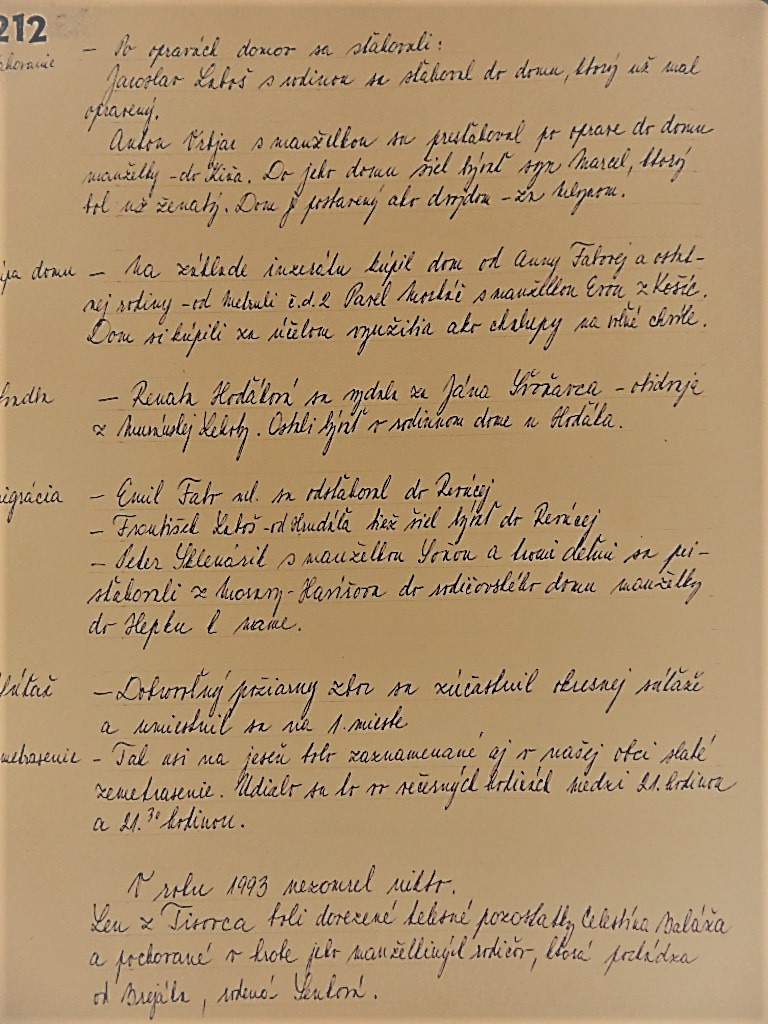 212
– Po opravách domov sa sťahovali:
Jaroslav Luboš s rodinou sa sťahoval do domu, ktorý už mal
opravený.
Anton Vrbjar s manželkou sa presťahoval po oprave do domu
manželky - do Kiža. Do jeho domu šiel bývať syn Marcel, ktorý
bol už ženatý. Dom je postavený ako dvojdom - za mlynom.
domu – Na základe inzerátu kúpil dom od Anny Fabovej a ostat-
nej rodiny - od Metruli č.d. 2 Pavel s manželkou Evou z Košíc.
Dom si kúpili za účelom využitia ako chalupy na voľné chvíle.
– Renata Hodáková sa vydala za Jána
z Muránskej Lehoty. Ostali bývať v rodinnom dome u Hodáka.
– Emil Fabo ml. sa odsťahoval do Revúcej
– František Luboš - od tiež šiel bývať do Revúcej
– Peter Sklenárik s manželkou Soňou a tromi deťmi sa pri-
sťahovali z Moravy - Havířova do rodičovského domu manželky
do Hepku k mame.
– Dobrovoľný požiarny zbor sa zúčastnil okresnej súťaže
a umiestnil sa na 1. mieste
– Tak asi na jeseň bolo zaznamenané aj v našej obci slabé
zemetrasenie. Udialo sa to vo večerných hodinách medzi 21. hodinou
a 21.30 hodinou.
V roku 1993 nezomrel nikto.
Len z Tisovca boli dovezené telesné pozostatky Celestína Baláža
a pochované v hrobe jeho manželkiných rodičov, ktorá pochádza
od, rodená